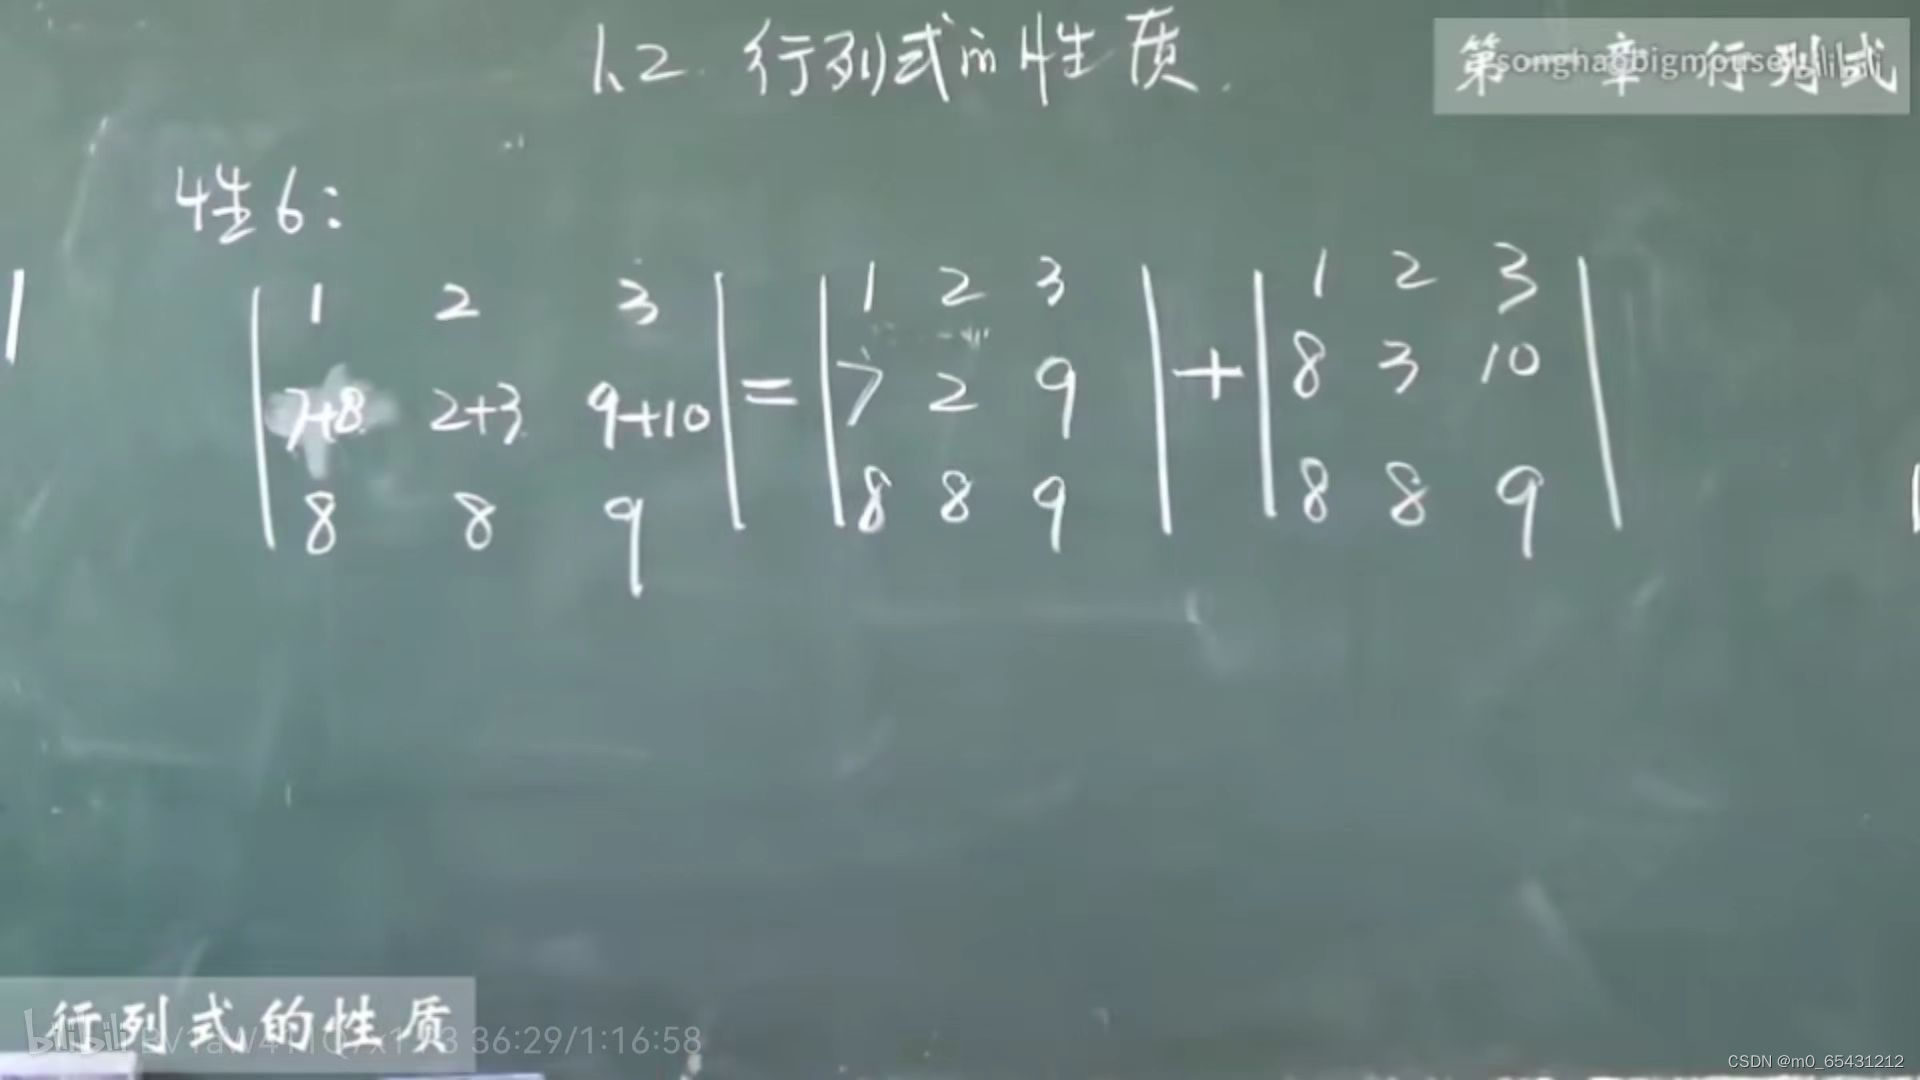 1.2 行列式的性质.
第一章 行列式
songhaobigmouse bilibili
性6:
| 1 2 3 | = | 1 2 3 | + | 1 2 3 |
| 7+8 2+3 9+10 | | 7 2 9 | | 8 3 10 |
| 8 8 9 | | 8 8 9 | | 8 8 9 |
行列式的性质
bilibili 36:29/1:16:58
CSDN @m0_65431212